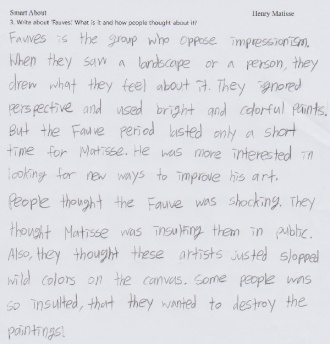 Smart About Henry Matisse
3. Write about 'Fauves.' What is it and how people thought about it?
Fauves is the group who oppose impressionism.
When they saw a landscape or a person, they
drew what they feel about it. They ignored
perspective and used bright and colorful paints.
But the Fauve period lasted only a short
time for Matisse. He was more interested in
looking for new ways to improve his art.
People thought the Fauve was shocking. They
thought Matisse was insulting them in public.
Also, they thought these artists justed slopped
wild colors on the canvas. Some people was
so insulted, that they wanted to destroy the
paintings!